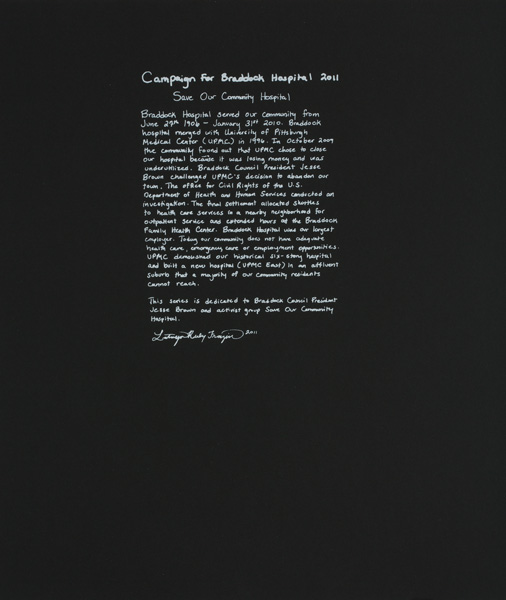 Campaign For Braddock Hospital 2011
Save Our Community Hospital
Braddock Hospital served our community from
June 29th 1906 - January 31st 2010. Braddock
hospital merged with University of Pittsburgh
Medical Center (UPMC) in 1996. In October 2009
the community found out that UPMC chose to close
our hospital because it was losing money and was
underutilized. Braddock Council President Jesse
Brown challenged UPMC's decision to abandon our
town. The office for Civil Rights of the U.S.
Department of Health and Human Services conducted an
investigation. The final settlement allocated shuttles
to health care services in a nearby neighborhood for
outpatient service and extended hours at the Braddock
Family Health Center. Braddock Hospital was our largest
employer. Today our community does not have adequate
health care, emergency care or employment opportunities.
UPMC demolished our historical six-story hospital
and built a new hospital (UPMC East) in an affluent
suburb that a majority of our community residents
cannot reach.
This series is dedicated to Braddock Council President
Jesse Brown and activist group Save Our Community
Hospital.
LaToya Ruby Frazier 2011